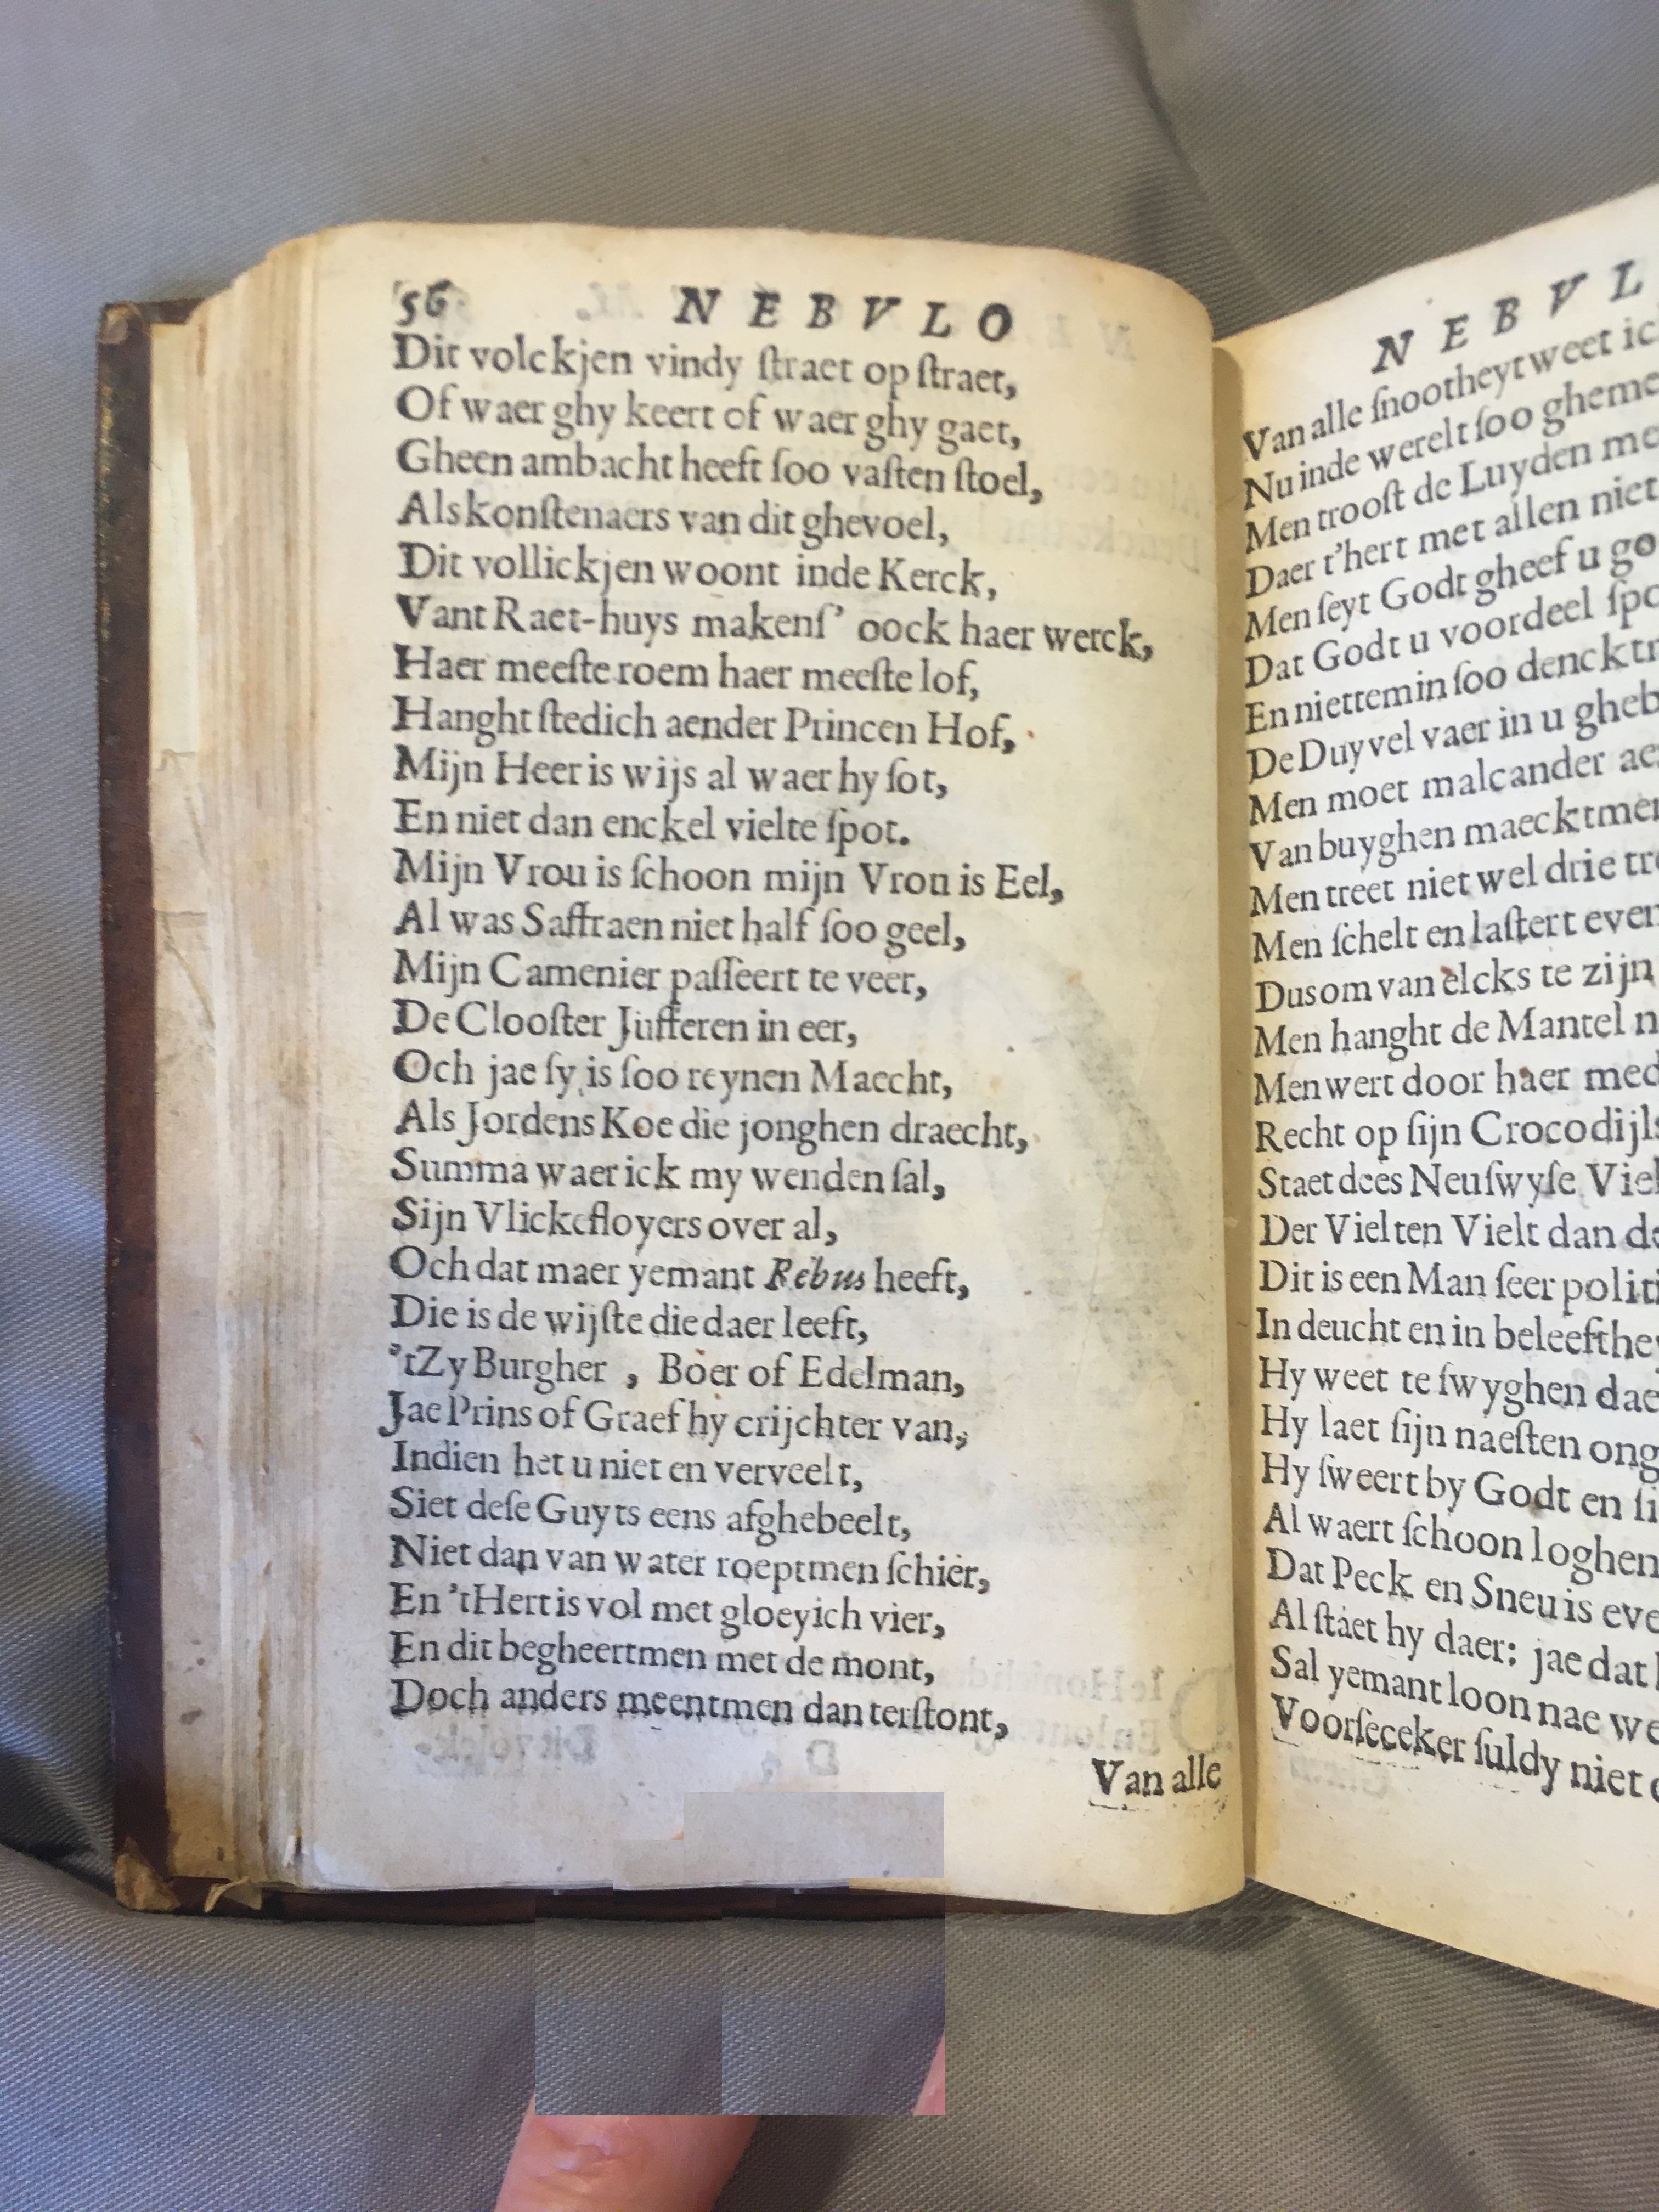 56 NEBVLO
Dit volckjen vindy ſtraet op ſtraet,
Of waer ghy keert of waer ghy gaet,
Gheen ambacht heeft ſoo vaſten ſtoel,
Als konſtenaers van dit ghevoel,
Dit vollickjen woont inde Kerck,
Vant Raet-huys makenſ' oock haer werck,
Haer meeſte roem haer meeſte lof,
Hanght ſtedich aender Princen Hof,
Mijn Heer is wijs al waer hy ſot,
En niet dan enckel vielte ſpot.
Mijn Vrou is ſchoon mijn Vrou is Eel,
Al was Saffraen niet half ſoo geel,
Mijn Camenier paſſeert te veer,
De Clooſter Jufferen in eer,
Och jae ſy is ſoo reynen Maecht,
Als Jordens Koe die jonghen draecht,
Summa waer ick my wenden ſal,
Sijn Vlickefloyers over al,
Och dat maer yemant Rebus heeft,
Die is de wijſte die daer leeft,
'tZy Burgher , Boer of Edelman,
Jae Prins of Graef hy crijchter van,
Indien het u niet en verveelt,
Siet deſe Guyts eens afghebeelt,
Niet dan van water roeptmen ſchier,
En 'tHert is vol met gloeyich vier,
En dit begheertmen met de mont,
Doch anders meentmen dan terſtont,
Van alle
NEBVL
Van alle ſnootheyt weet
Nu inde werelt ſoo
Men trooſt de Luyden
Daer t'hert met allen niet
Men ſeyt Godt gheef u
Dat Godt u voordeel
En niettemin ſoo
De Duyvel vaer in u
Men moet malcander
Van buyghen
Men treet niet wel drie
Men ſchelt en laſtert
Dus om van elcks te zijn
Men hanght de Mantel
Men wert door haer
Recht op ſijn
Staet dees Neuſwyſe
Der Vielten Vielt dan
Dit is een Man ſeer
In deucht en in
Hy weet te ſwyghen
Hy laet ſijn naeſten
Hy ſweert by Godt en
Al waert ſchoon
Dat Peck en Sneu is
Al ſtaet hy daer: jae dat
Sal yemant loon nae
Voorſeceker ſuldy niet